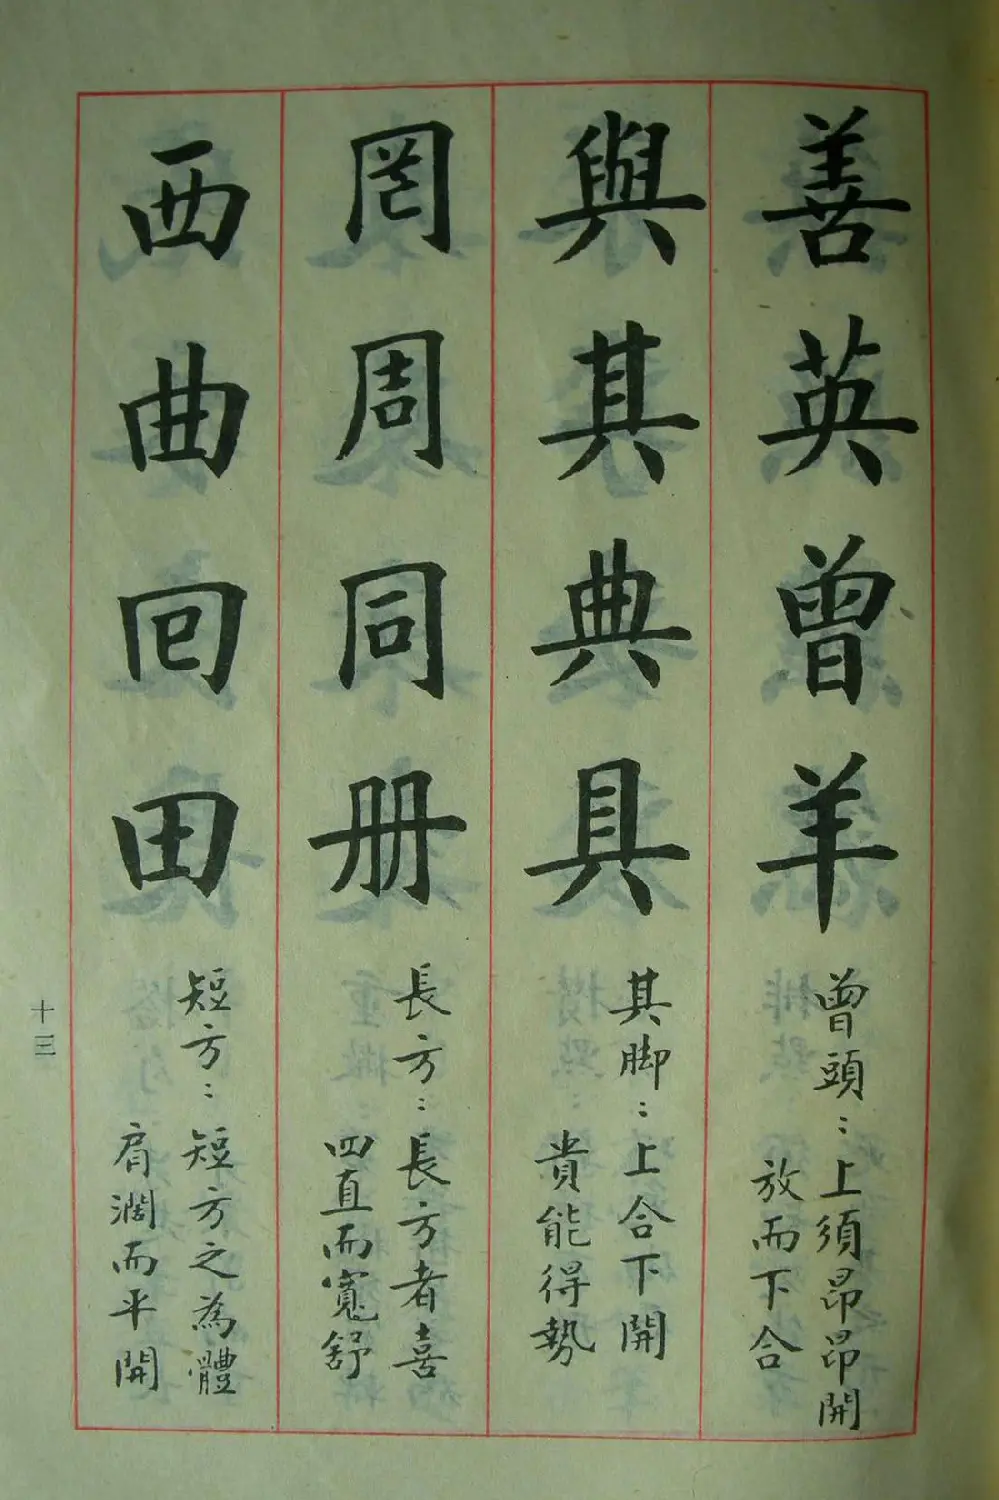 善英曾羊
曾頭：上須昂昂開
放而下合
與其典具
其脚：上合下開
貴能得勢
罔周同册
長方：長方者喜
四直而寬舒
西曲回田
短方：短方之為體
肩濶而平開
十三